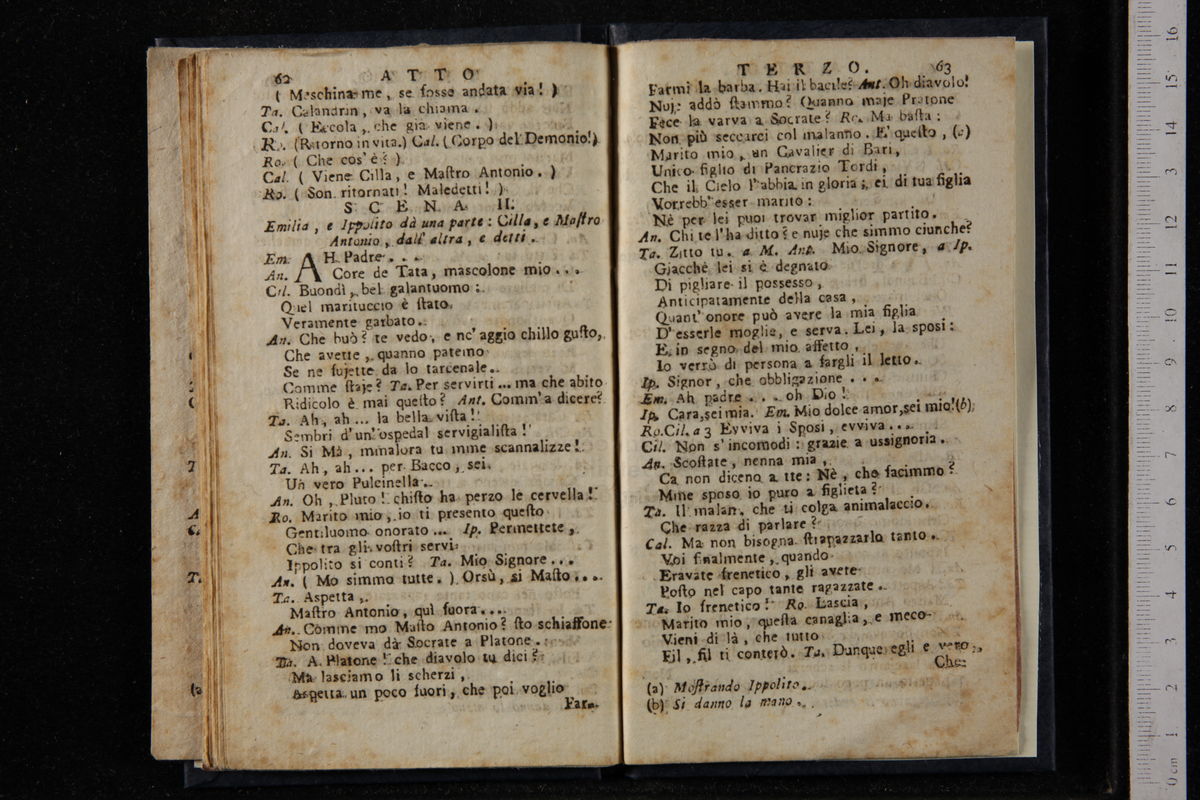 62 ATTO
( Meschina me, se fosse andata via! )
Ta. Calandrin, va la chiama.
Cal. ( Eccola, che già viene. )
Ro. (Ritorno in vita.) Cal. (Corpo del Demonio!)
Ro. ( Che cos' è? )
Cal. ( Viene Cilla, e Mastro Antonio. )
Ro. ( Son ritornati! Maledetti! )
SCENA II.
Emilia, e Ippolito dà una parte: Cilla, e Mastro
Antonio, dall' altra, e detti.
Em. AH Padre...
An. Core de Tata, mascolone mio...
Cil. Buondì, bel galantuomo:
Quel marituccio è stato
Veramente garbato.
An. Che buò? te vedo, e nc' aggio chillo gusto,
Che avette, quanno patemo
Se ne fujette da lo tarcenale.
Comme staje? Ta. Per servirti... ma che abito
Ridicolo è mai questo? Ant. Comm' a dicere?
Ta. Ah, ah... la bella vista!
Sembri d' un' ospedal servigialista!
An. Si Mà, mmalora tu mme scannalizze!
Ta. Ah, ah... per Bacco, sei
Un vero Pulcinella.
An. Oh, Pluto! chisto ha perzo le cervella!
Ro. Marito mio, io ti presento questo
Gentiluomo onorato... Ip. Permettete,
Che tra gli vostri servi
Ippolito si conti? Ta. Mio Signore...
An. ( Mo simmo tutte. ) Orsù, si Masto...
Ta. Aspetta,
Mastro Antonio, quì fuora...
An. Comme mo Masto Antonio? sto schiaffone
Non doveva dà Socrate a Platone.
Ta. A Platone! che diavolo tu dici?
Ma lasciamo li scherzi,
Aspetta un poco fuori, che poi voglio
Far-
TERZO. 63
Farmi la barba. Hai il bacile? Ant. Oh diavolo!
Nuje addò stammo? Quanno maje Pratone
Fece la varva a Socrate? Ro. Ma basta:
Non più seccarci col malanno. E' questo, (a)
Marito mio, un Cavalier di Bari,
Unico figlio di Pancrazio Tordi,
Che il Cielo l'abbia in gloria; ei di tua figlia
Vorrebb' esser marito:
Nè per lei puoi trovar miglior partito.
An. Chi te l'ha ditto? e nuje che simmo ciunche?
Ta. Zitto tu. a M. Ant. Mio Signore, a Ip.
Giacchè lei si è degnato
Di pigliare il possesso,
Anticipatamente della casa,
Quant' onore può avere la mia figlia
D' esserle moglie, e serva. Lei, la sposi:
E in segno del mio affetto,
Io verrò di persona a fargli il letto.
Ip. Signor, che obbligazione...
Em. Ah padre... oh Dio!
Ip. Cara, sei mia. Em. Mio dolce amor, sei mio! (b)
Ro. Cil. a 3 Evviva i Sposi, evviva...
Cil. Non s' incomodi: grazie a ussignoria.
An. Scostate, nenna mia,
Ca non diceno a tte: Nè, che facimmo?
Mme sposo io puro a figlieta?
Ta. Il malan, che ti colga animalaccio.
Che razza di parlare?
Cal. Ma non bisogna strapazzarlo tanto.
Voi finalmente, quando
Eravate frenetico, gli avete
Posto nel capo tante ragazzate.
Ta. Io frenetico! Ro. Lascia,
Marito mio, questa canaglia, e meco
Vieni di là, che tutto
Fil, fil ti conterò. Ta. Dunque egli e vero,
Che
(a) Mostrando Ippolito.
(b) Si danno la mano.